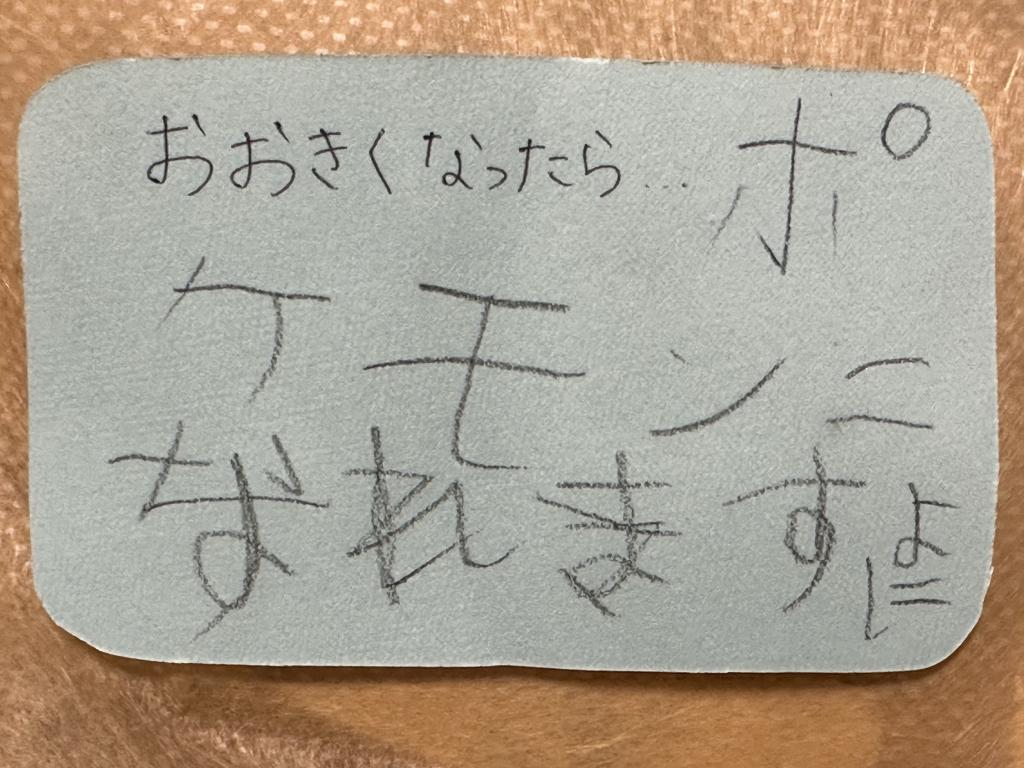 おおきくなったら... ポ
ケモンニ
なれますよ
に